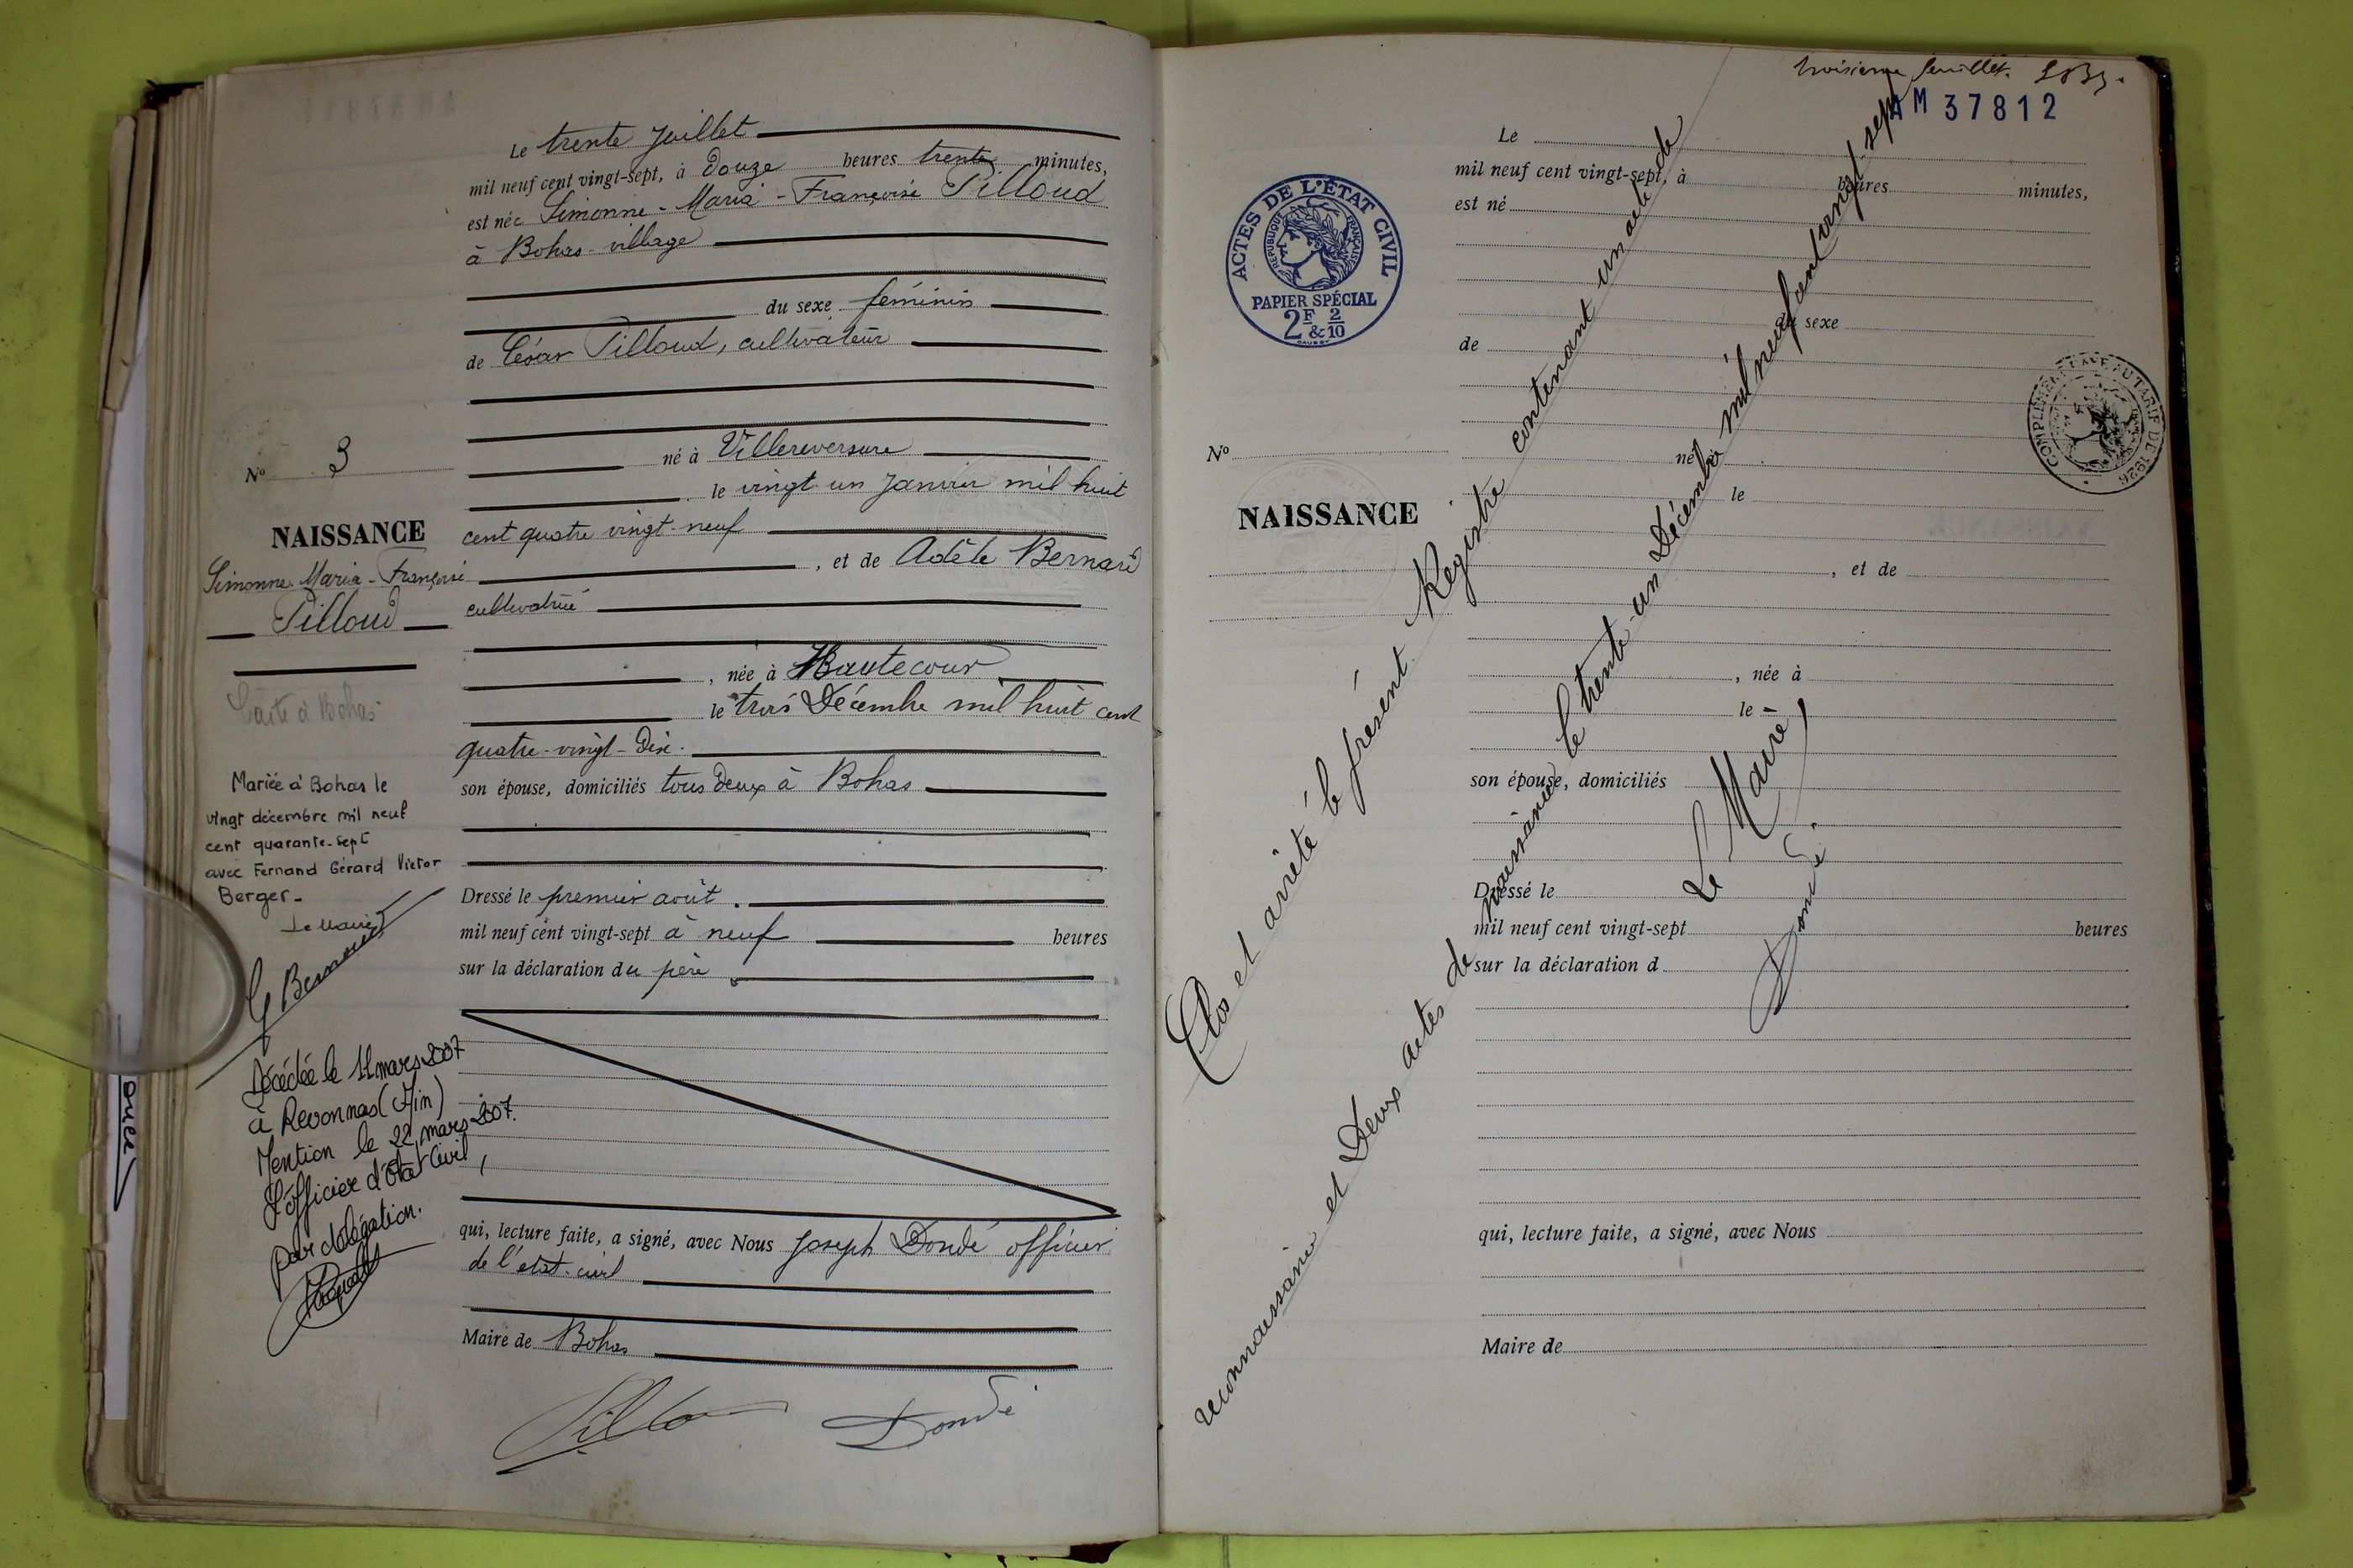 Le trente Juillet
mil neuf cent vingt-sept, à Douze heures trente minutes,
est née Simonne-Maria-Françoise Pilloud
à Bohas-village
du sexe féminin
de César Pilloud, cultivateur
né à Villereversure
le vingt un Janvier mil huit
cent quatre vingt-neuf
, et de Adèle Bernard
cultivatrice
, née à Hautecour
le trois Décembre mil huit cent
quatre-vingt-Dix.
son épouse, domiciliés tous deux à Bohas
Dressé le premier août.
mil neuf cent vingt-sept à neuf heures
sur la déclaration du père
qui, lecture faite, a signé, avec Nous Joseph Dondé officier
de l'état-civil
Maire de Bohas
Pilloud Dondé
No 3
NAISSANCE
Simonne-Maria-Françoise
Pilloud
à Bohas
Mariée à Bohas le
vingt décembre mil neuf
cent quarante-sept
avec Fernand Gérard Victor
Berger-
Le Maire
Décédée le 11 mars 2007
à Revonnas (Ain)
Mention le 22 mars 2007.
L'officier d'état civil,
par délégation.
troisième feuillet.
AM 37812
ACTES DE L'ÉTAT CIVIL
RÉPUBLIQUE FRANÇAISE
PAPIER SPÉCIAL
2F & 2/10
COMPLÉMENT AU TARIF DE 1926
Le
mil neuf cent vingt-sept, à heures minutes,
est né
du sexe
de
No
né à
NAISSANCE
le
, et de
, née à
le
son épouse, domiciliés
Dressé le
mil neuf cent vingt-sept heures
sur la déclaration d
qui, lecture faite, a signé, avec Nous
Maire de
Clos et arrêté le présent Registre contenant un acte de
reconnaissance et Deux actes de naissance le trente-un Décembre mil neuf cent vingt-sept
Le Maire,
Dondé